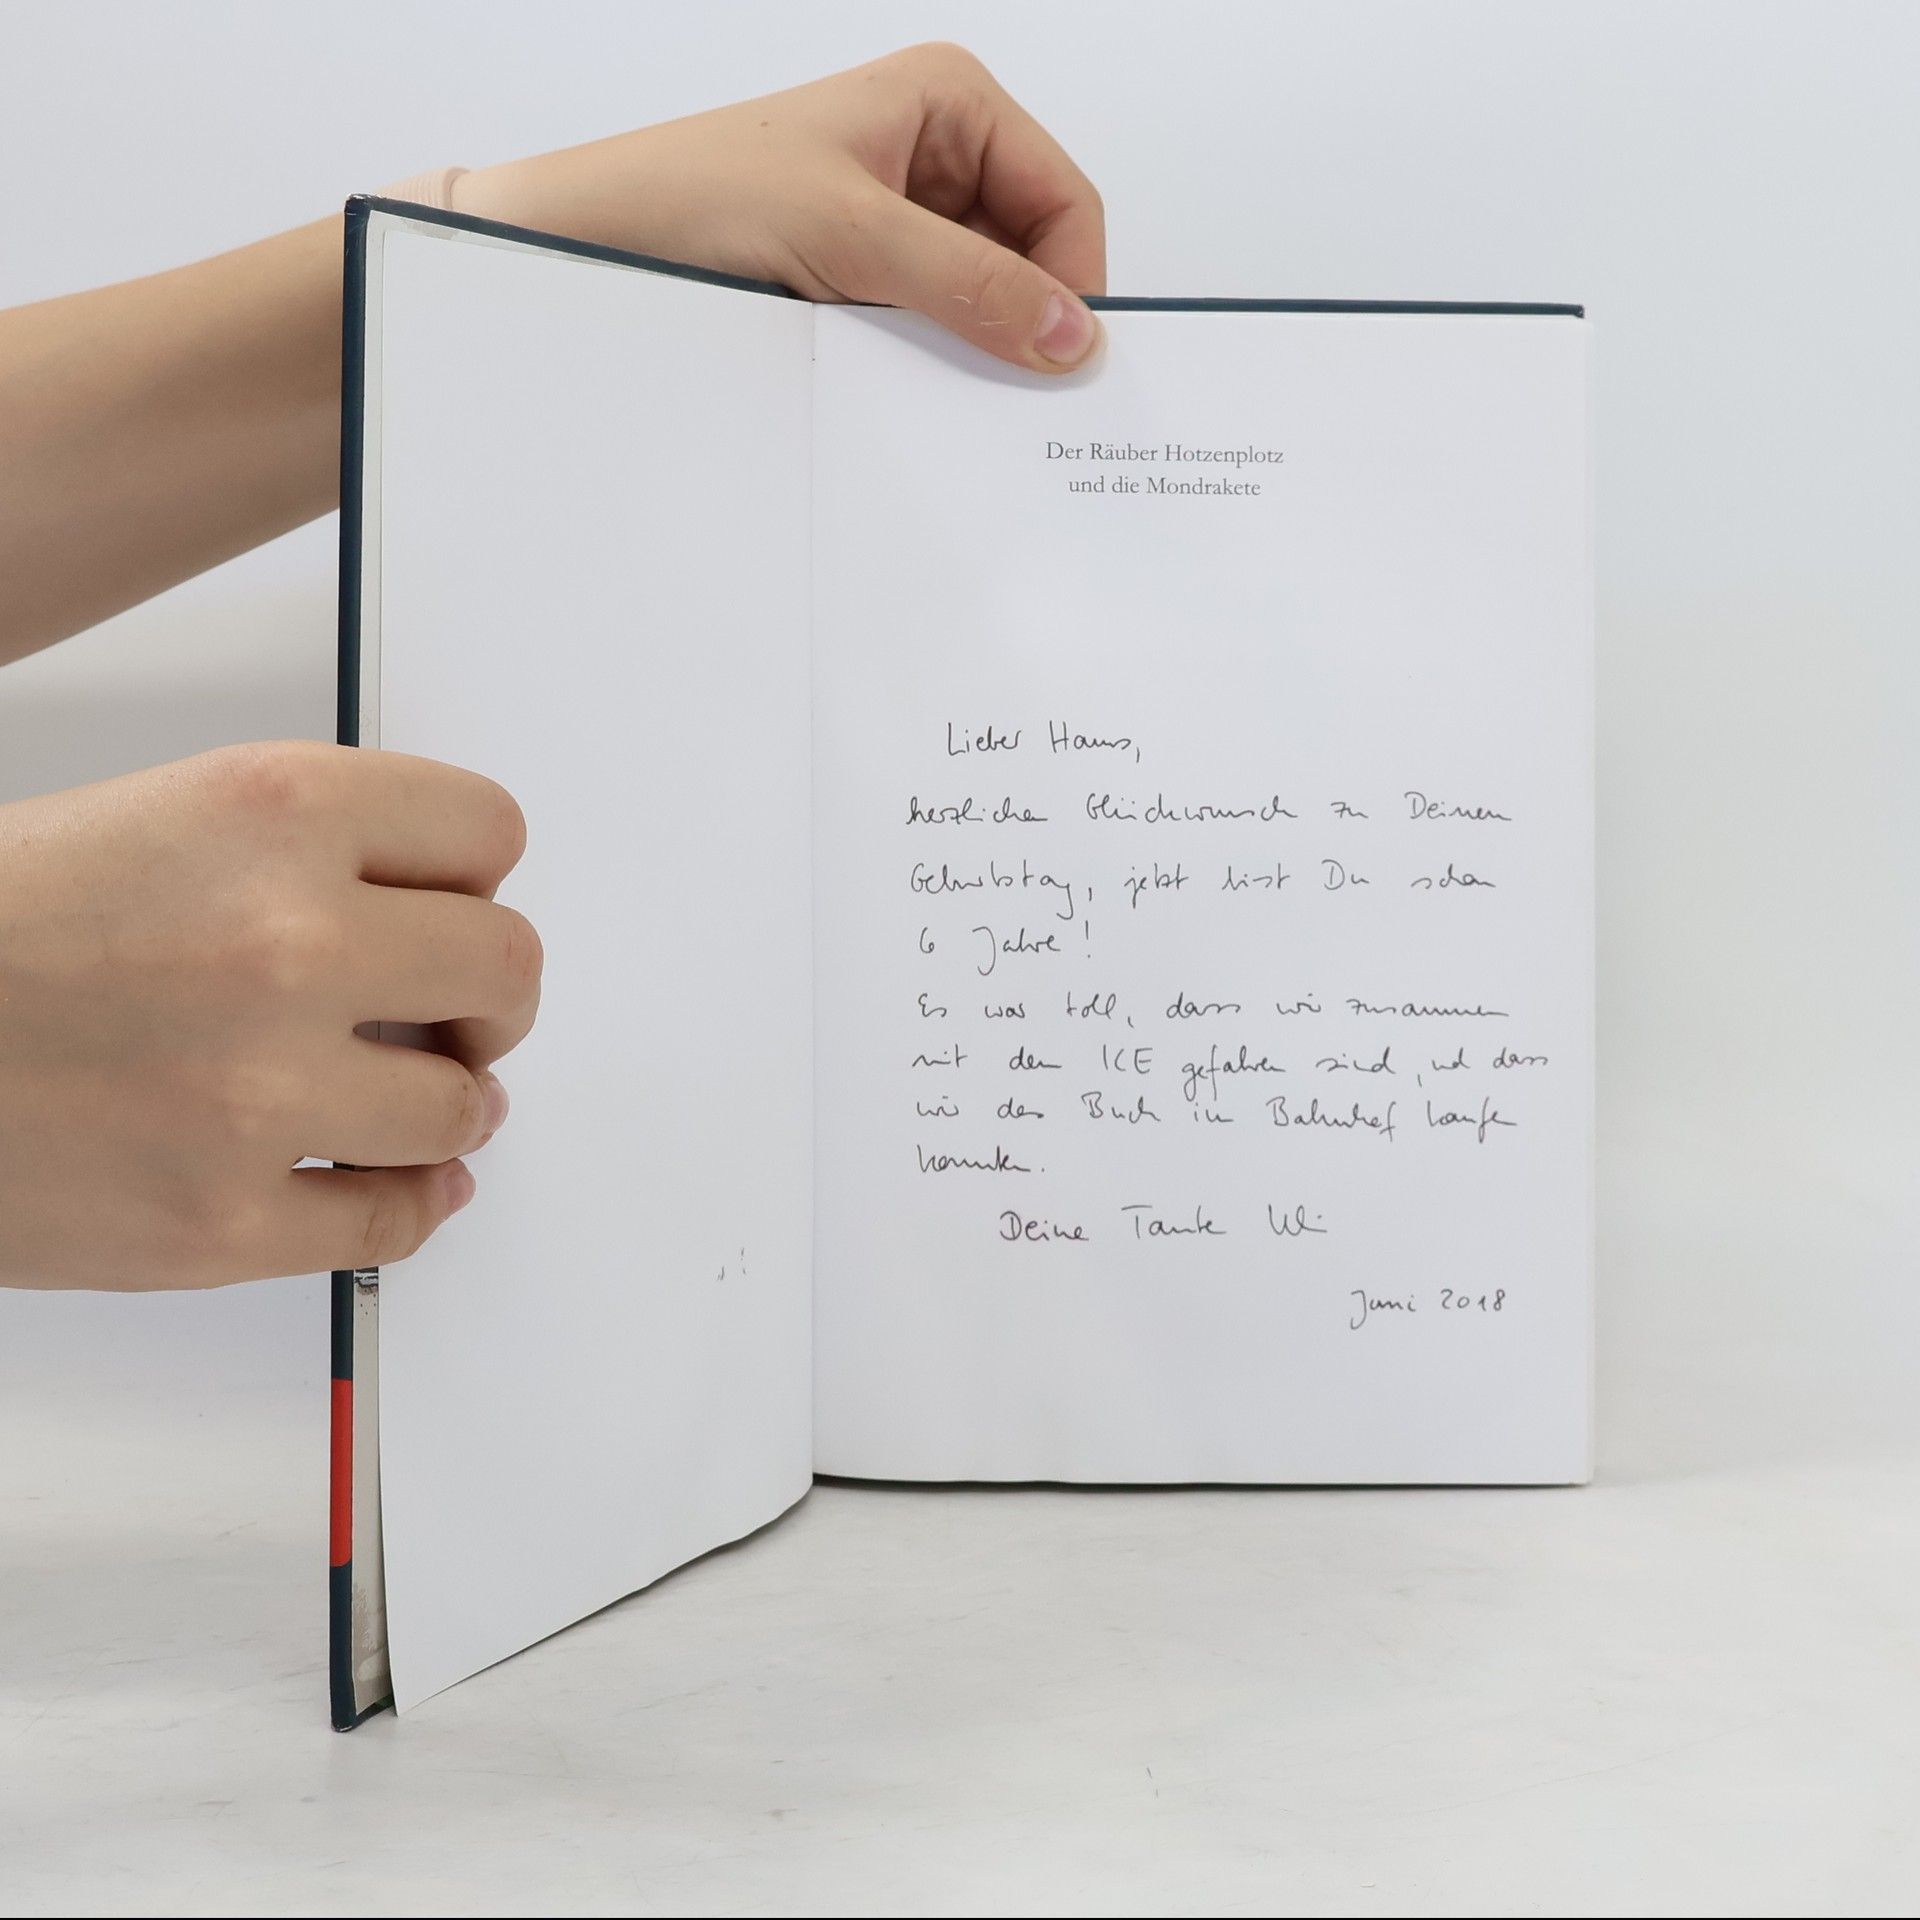 Der Räuber Hotzenplotz
und die Mondrakete
Lieber Hanns,
herzlichen Glückwunsch zu Deinen
Geburtstag, jetzt bist Du schon
6 Jahre!
Es war toll, dass wir zusammen
mit dem ICE gefahren sind, und dass
wir das Buch im Bahnhof kaufen
konnten.
Deine Tante
Juni 2018